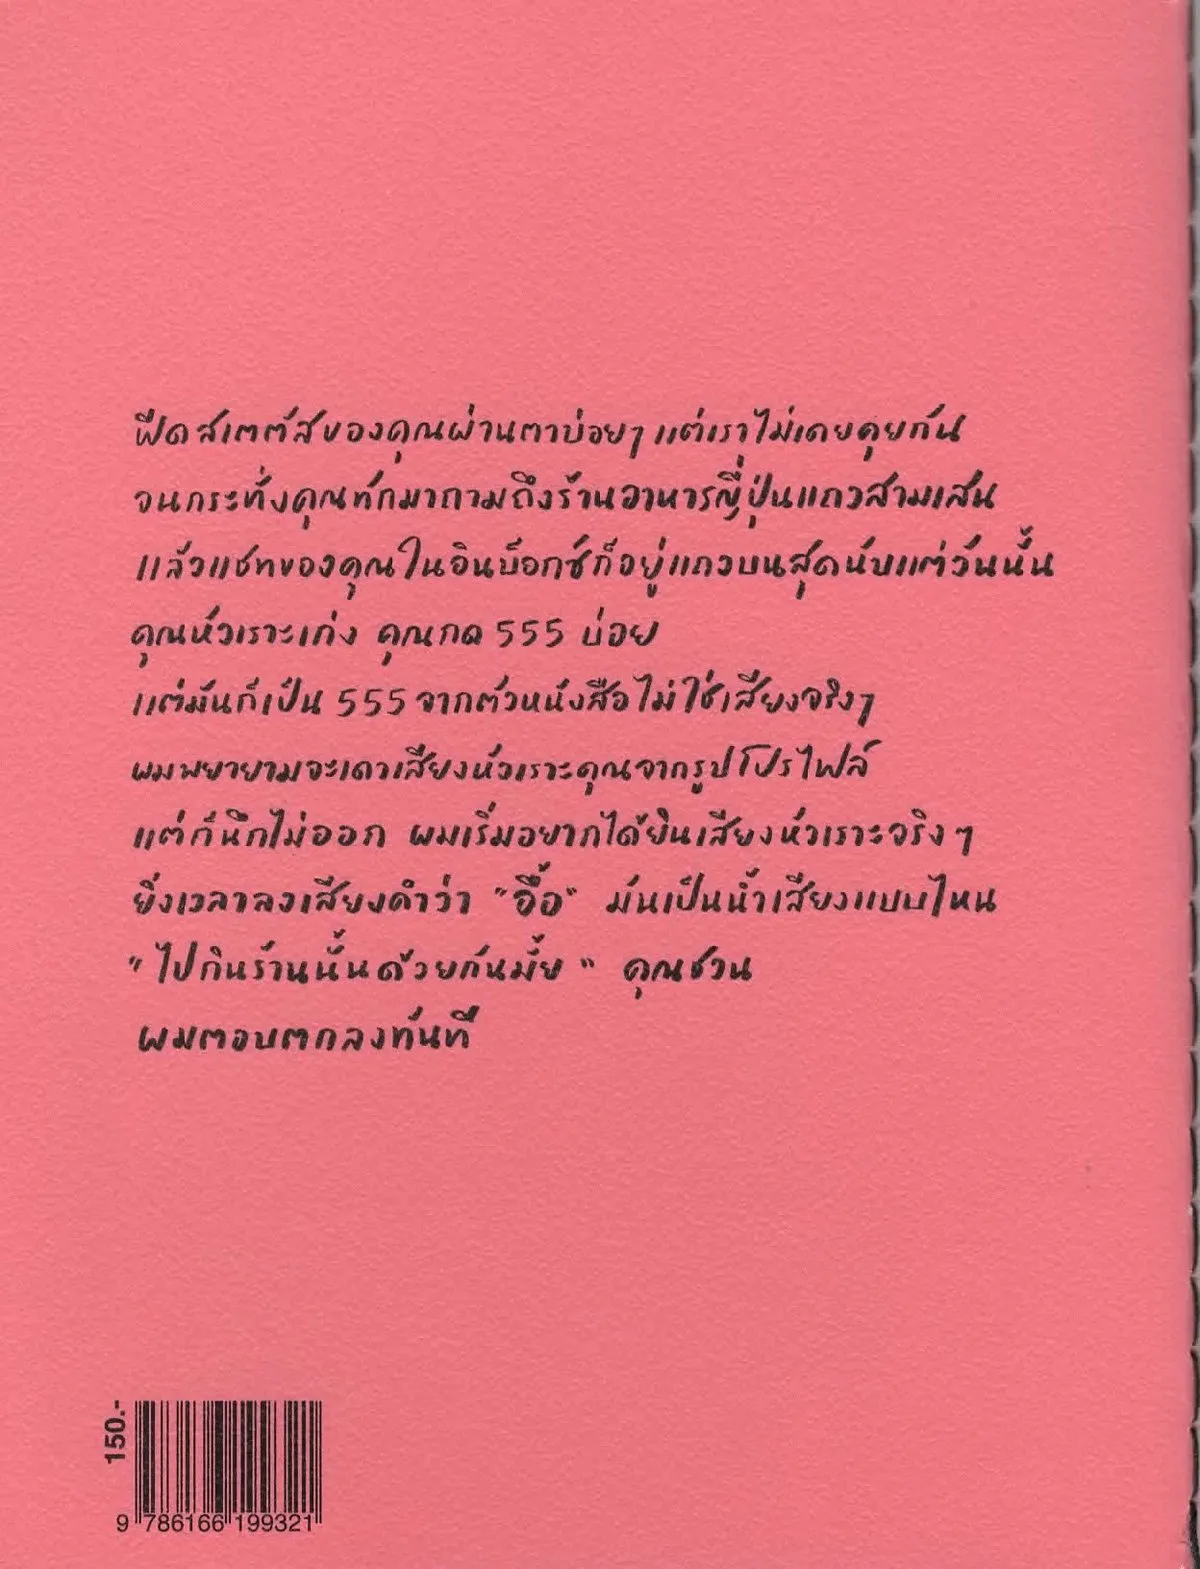 ฟีดสเตตัสของคุณผ่านตาบ่อยๆ แต่เราไม่เคยคุยกัน
จนกระทั่งคุณทักมาถามถึงร้านอาหารญี่ปุ่นแถวสามเสน
แล้วแชทของคุณในอินบ็อกซ์ก็อยู่แถวบนสุดนับแต่วันนั้น
คุณหัวเราะเก่ง คุณกด 555 บ่อย
แต่มันก็เป็น 555 จากตัวหนังสือไม่ใช่เสียงจริงๆ
ผมพยายามจะเดาเสียงหัวเราะคุณจากรูปโปรไฟล์
แต่ก็นึกไม่ออก ผมเริ่มอยากได้ยินเสียงหัวเราะจริงๆ
ยิ่งเวลาลงเสียงคำว่า "อื้อ" มันเป็นน้ำเสียงแบบไหน
"ไปกินร้านนั้นด้วยกันมั้ย" คุณชวน
ผมตอบตกลงทันที
150.-
9 786166 199321